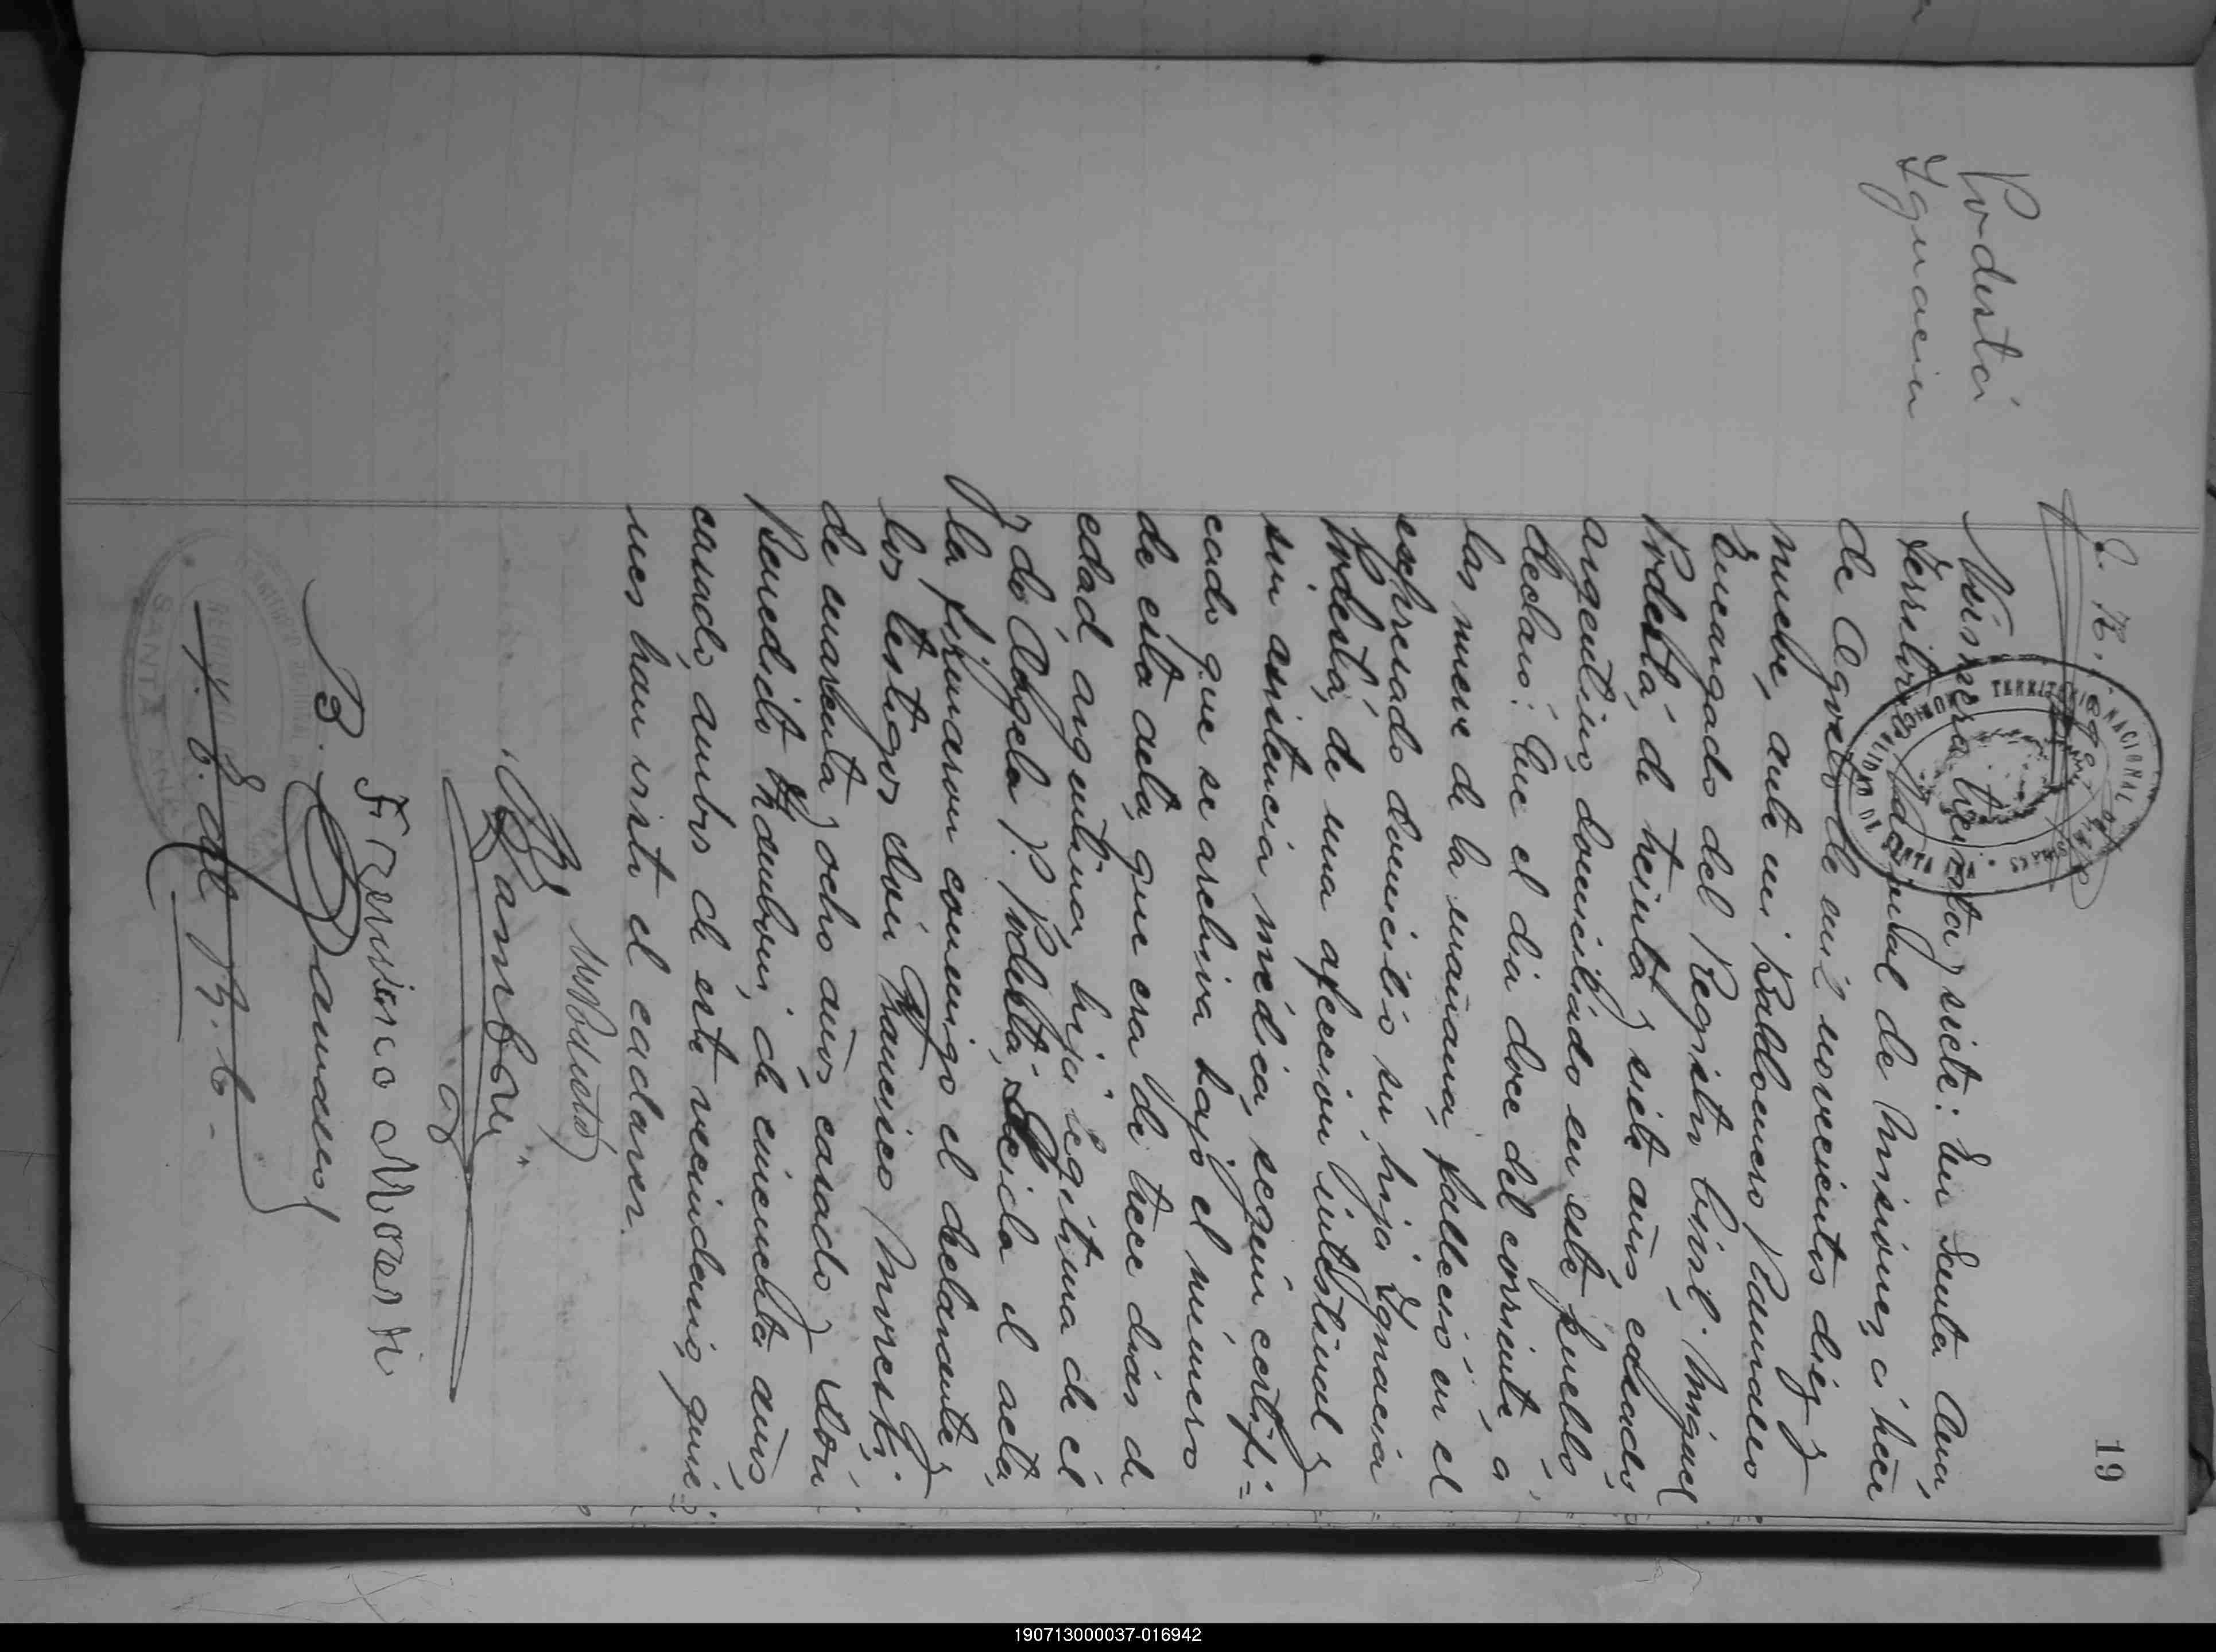 19
Podestá
Ignacia
Número treinta y siete: En Santa Ana,
Territorio Nacional de Misiones, a trece
de Agosto de mil novecientos diez y
nuebe, ante mi Baldomero
Encargado del Registro Civil: Miguel
Podestá, de treinta y siete años edead,
argentino, domiciliado en este pueblo,
declaró: Que el dia doce del corriente, a
las nueve de la mañana, falleció en el
expresado domicilio su hija Ignacia
Podestá, de una afeccion intestinal y
sin asistencia médica, según certifi=
cado que se archiva bajo el número
de esta acta, que era de trece dias de
edad, argentina, hija legítima de él
y de Angela P. Podestá, Leida el acta,
la firmaron conmigo el declarante y
los testigos don Francisco Moreski,
de cuarenta y ocho años, casado y don
Benedicto Kamboni, de cincuenta años,
casado, ambos de este vecindario, quie=
nes han visto el cadaver.
M Podestá
B.
Francisco
TERRITORIO NACIONAL DE MISIONES
SANTA ANA
190713000037-016942